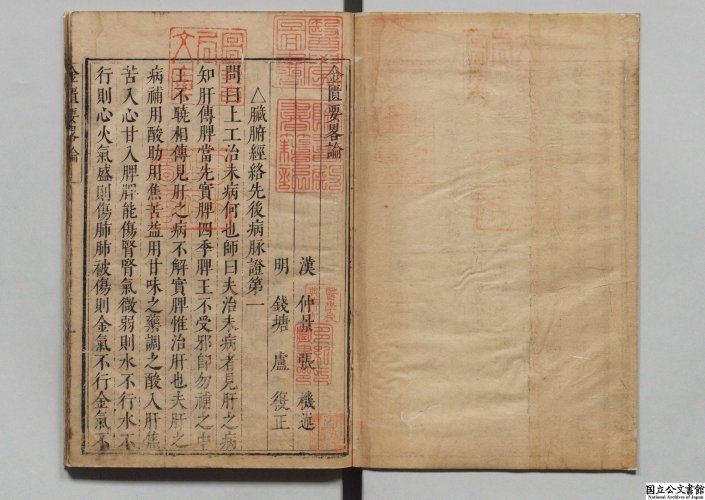 金匱要畧論
漢 仲景 張 機述
明 錢塘 盧 復正
△臟腑經絡先後病脉證第一
問曰上工治未病何也師曰夫治未病者見肝之病
知肝傳脾當先實脾四季脾王不受邪卽勿補之中
工不曉相傳見肝之病不解實脾惟治肝也夫肝之
病補用酸助用焦苦益用甘味之藥調之酸入肝焦
苦入心甘入脾脾能傷腎腎氣微弱則水不行水不
行則心火氣盛則傷肺肺被傷則金氣不行金氣不
金匱要畧論
国立公文書館
National Archives of Japan